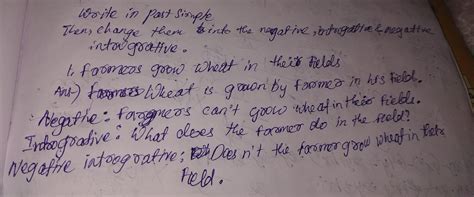 Write in past simple
Then, change them into the negative, introgative & negative
introgrative.
1. farmers grow wheat in their fields
Ans-) Wheat is grown by farmer in his field.
Negative: farmers can't grow wheat in their fields.
Introgradive: What does the farmer do in the field?
Negative introgrative: Does n't the farmer grow wheat in their
Field.